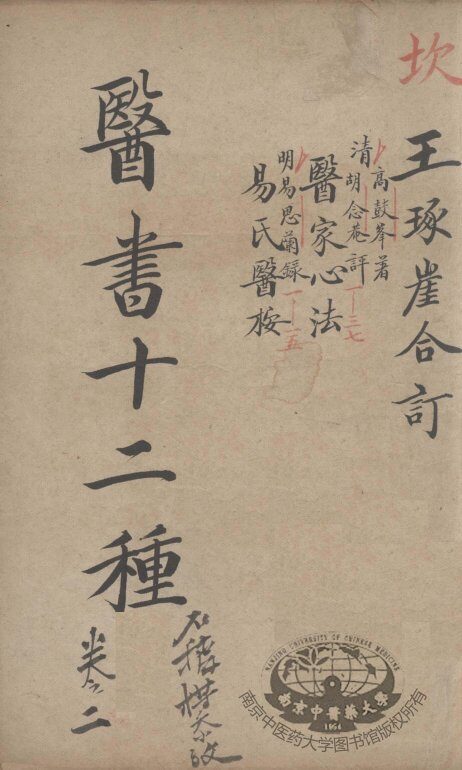 坎
王琢崖合訂
高鼓峯著
清胡念菴評 一-三七
醫家心法
明易思蘭錄 一-一五
易氏醫按
醫書十二種
卷二
NANJING UNIVERSITY OF CHINESE MEDICINE
南京中醫藥大學
1954
南京中医药大学图书馆版权所有